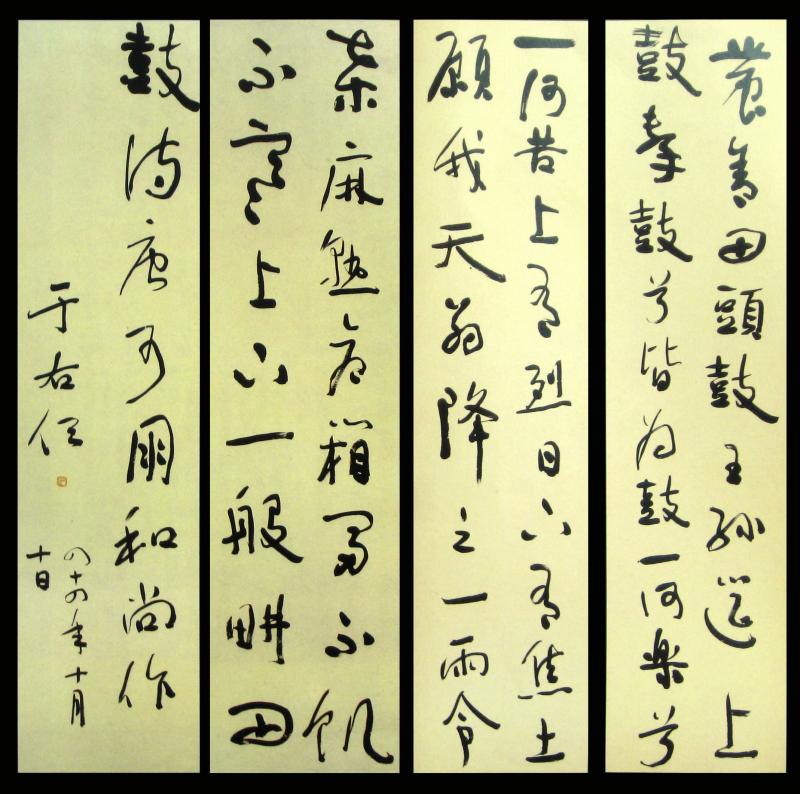 農舍田頭鼓王孫筵上
鼓擊鼓兮皆為鼓一何樂兮
一何苦上有烈日下有焦土
願我天翁降之一雨令
桑麻熟倉箱富不飢
不寒上下一般耕田
鼓詩唐可朋和尚作
于右任
四十四年十月
十日